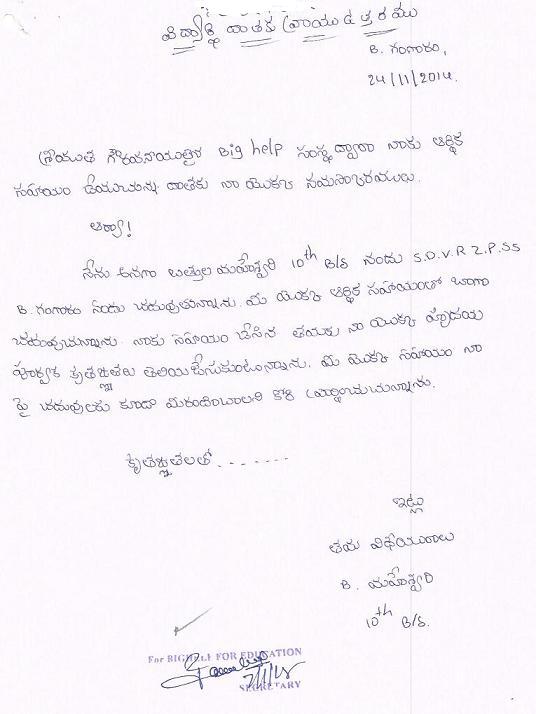 విద్యార్థి దాతకు వ్రాయు ఉత్తరము
B. గంగారం,
24/11/2014.
శ్రీయుత గౌరవనీయులైన Big help సంస్థ ద్వారా నాకు ఆర్థిక
సహాయం చేయుచున్న దాతకు నా యొక్క నమస్కారములు.
ఆర్యా!
నేను అనగా బత్తుల మహేశ్వరి 10th B/S నందు S.D.V.R Z.P.SS
B. గంగారం నందు చదువుతున్నాను. మీ యొక్క ఆర్థిక సహాయంతో బాగా
చదువుచున్నాను. నాకు సహాయం చేసిన తమకు నా యొక్క హృదయ
పూర్వక కృతజ్ఞతలు తెలియజేసుకుంటున్నాను. మీ యొక్క సహాయం నా
పై చదువులకు కూడా మీరందించాలని కోరి ప్రార్థించుచున్నాను.
కృతజ్ఞతలతో.......
ఇట్లు
తమ విధేయురాలు
B. మహేశ్వరి
10th B/S.
For BIGHELP FOR EDUCATION
SECRETARY